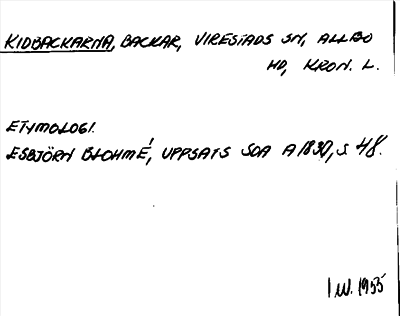 KIDBACKARNA, BACKAR, VIRESTADS SN, ALLBO
HD, KRON. L.
ETYMOLOGI.
ESBJÖRN BLOHMÉ, UPPSATS SOA A 1830, S 48.
1955